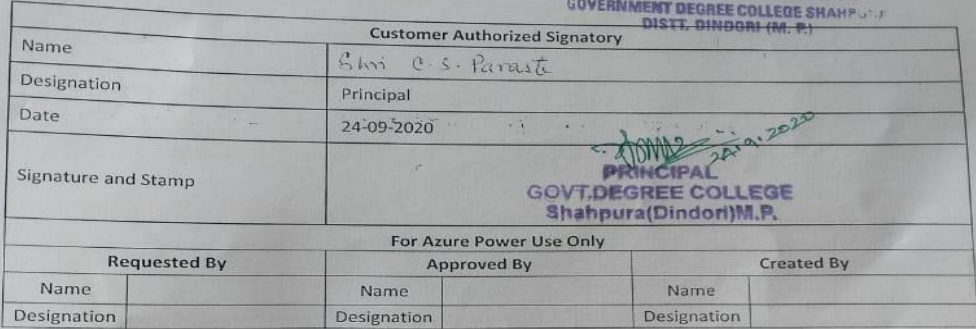 GOVERNMENT DEGREE COLLEGE SHAHPURA
DISTT. DINDORI (M. P.)
Customer Authorized Signatory
Name Shri C. S. Paraste
Designation Principal
Date 24-09-2020
24.9.2020
Signature and Stamp
PRINCIPAL
GOVT.DEGREE COLLEGE
Shahpura(Dindori)M.P.
For Azure Power Use Only
Requested By Approved By Created By
Name Name Name
Designation Designation Designation